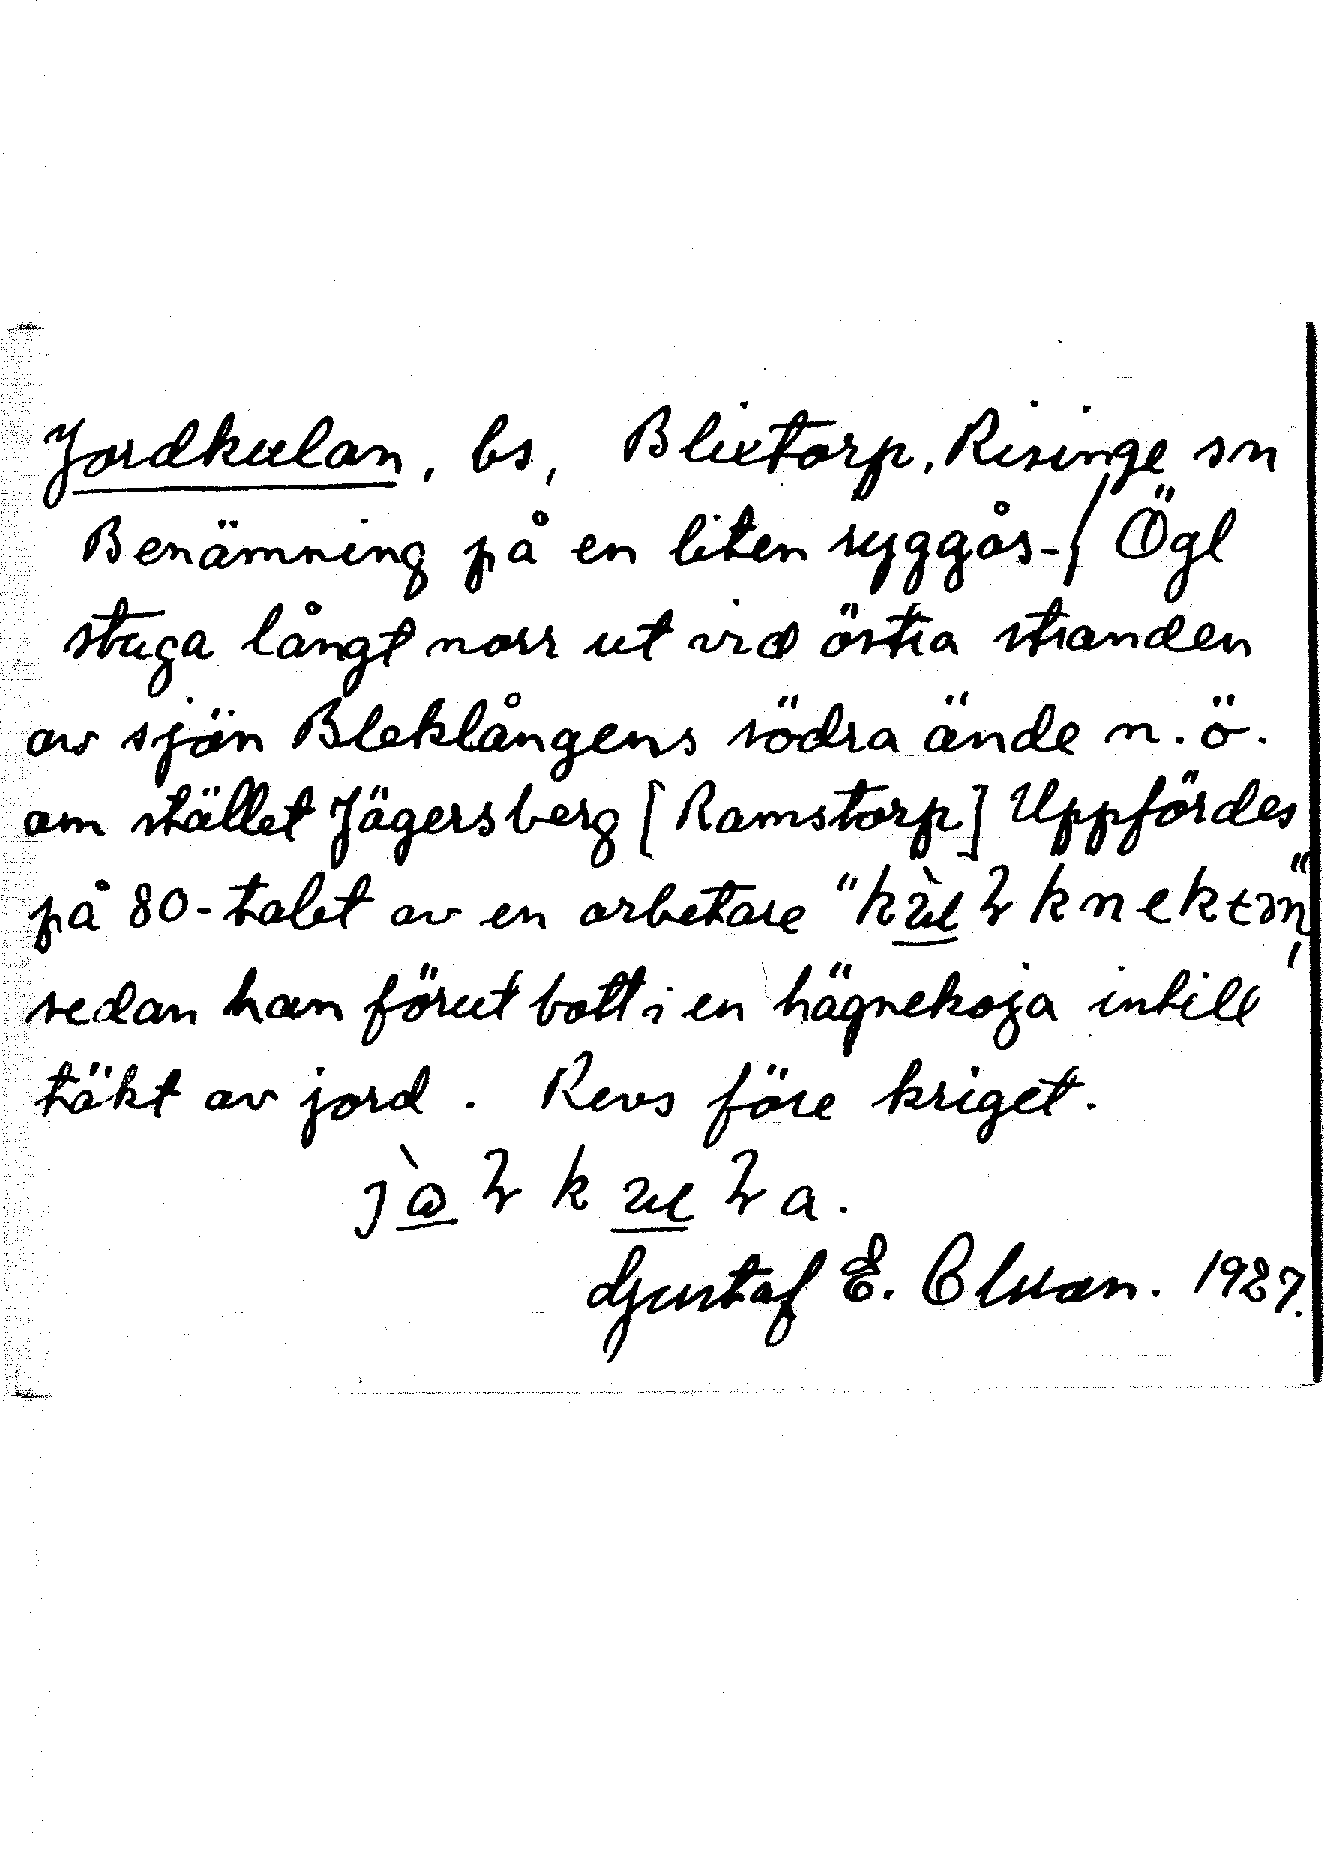 Jordkulan, bs, Blixtorp, Risinge sn
Benämning på en liten ryggås- / Ögl
stuga långt norr ut vid östra stranden
av sjön Bleklångens södra ände n.ö.
om stället Jägersberg [Ramstorp] Uppfördes
på 80-talet av en arbetare "
sedan han förut bott i en hägnekoja intill
täkt av jord. Revs före kriget.
Gustaf E. Clson. 1927.